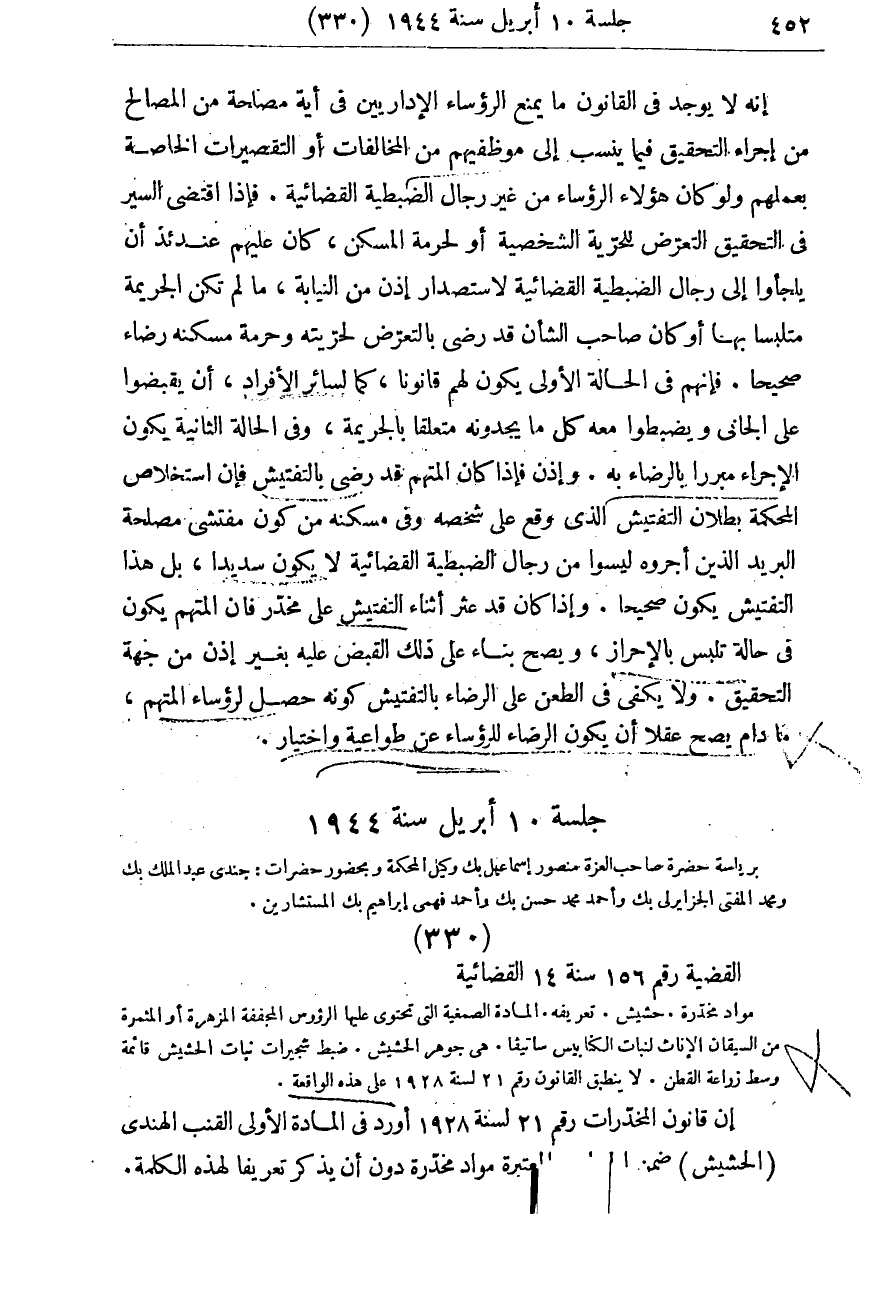 ٤٥٢ جلسة ١٠ أبريل سنة ١٩٤٤ (٣٣٠)
إنه لا يوجد فى القانون ما يمنع الرؤساء الإداريين فى أية مصلحة من المصالح
من إجراء التحقيق فيما ينسب إلى موظفيهم من المخالفات أو التقصيرات الخاصة
بعملهم ولو كان هؤلاء الرؤساء من غير رجال الضبطية القضائية . فإذا اقتضى السير
فى التحقيق التعرّض للحرّية الشخصية أو لحرمة المسكن ، كان عليهم عندئذ أن
يلجأوا إلى رجال الضبطية القضائية لاستصدار إذن من النيابة ، ما لم تكن الجريمة
متلبسا بها أو كان صاحب الشأن قد رضى بالتعرّض لحرّيته وحرمة مسكنه رضاء
صحيحا . فإنهم فى الحالة الأولى يكون لهم قانونا ، كما لسائر الأفراد ، أن يقبضوا
على الجانى ويضبطوا معه كل ما يجدونه متعلقا بالجريمة ، وفى الحالة الثانية يكون
الإجراء مبررا بالرضاء به . وإذن فإذا كان المتهم قد رضى بالتفتيش فإن استخلاص
المحكمة بطلان التفتيش الذى وقع على شخصه وفى مسكنه من كون مفتشى مصلحة
البريد الذين أجروه ليسوا من رجال الضبطية القضائية لا يكون سديدا ، بل هذا
التفتيش يكون صحيحا . وإذا كان قد عثر أثناء التفتيش على مخدّر فان المتهم يكون
فى حالة تلبس بالإحراز ، ويصح بناء على ذلك القبض عليه بغير إذن من جهة
التحقيق . ولا يكفى فى الطعن على الرضاء بالتفتيش كونه حصل لرؤساء المتهم ،
ما دام يصح عقلا أن يكون الرضاء للرؤساء عن طواعية واختيار .
جلسة ١٠ أبريل سنة ١٩٤٤
برياسة حضرة صاحب العزة منصور إسماعيل بك وكيل المحكمة وبحضور حضرات : جندى عبد الملك بك
ومحمد المفتى الجزايرلى بك وأحمد محمد حسن بك وأحمد فهمى إبراهيم بك المستشارين .
(٣٣٠)
القضية رقم ١٥٦ سنة ١٤ القضائية
مواد مخدّرة . حشيش . تعريفه . المادة الصمغية التى تحتوى عليها الرؤوس المجففة المزهرة أو المثمرة
من السيقان الإناث لنبات الكنابيس ساتيفا . هى جوهر الحشيش . ضبط شجيرات نبات الحشيش قائمة
وسط زراعة القطن . لا ينطبق القانون رقم ٢١ لسنة ١٩٢٨ على هذه الواقعة .
إن قانون المخدّرات رقم ٢١ لسنة ١٩٢٨ أورد فى المادة الأولى القنب الهندى
(الحشيش) ضمن مواد مخدّرة دون أن يذكر تعريفا لهذه الكلمة .